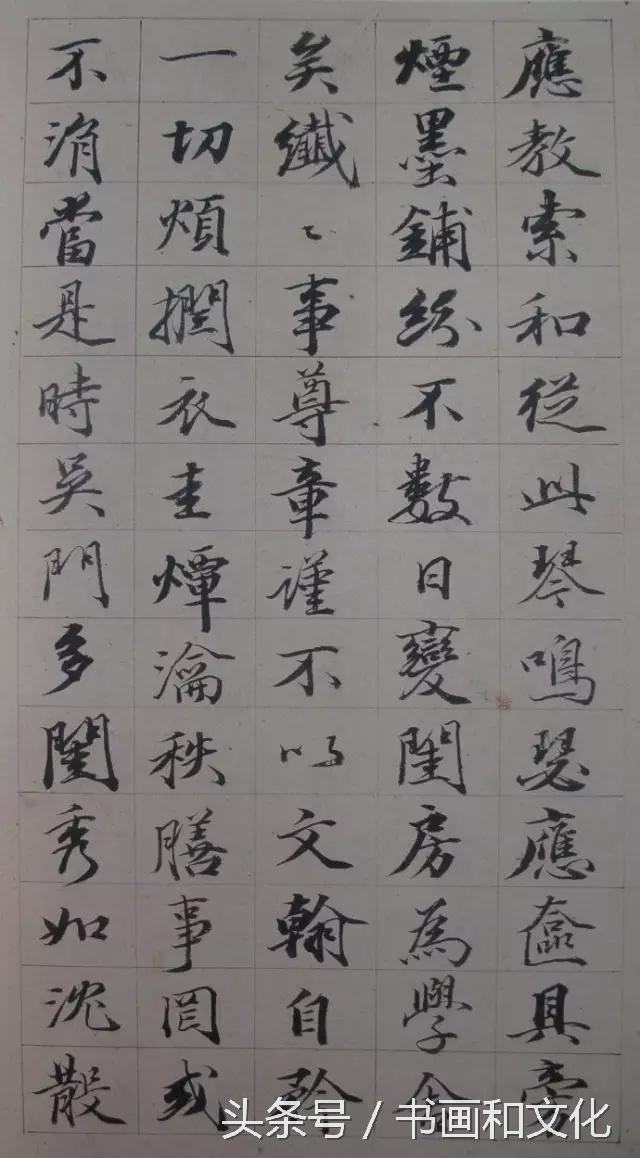 應教索和從此琴鳴瑟應奩具旁
煙墨鋪紛不數日變閨房為學舍
矣纖〻事尊章謹不以文翰自矜
一切煩撋衣圭燀瀹秩膳事罔或
不涓當是時吳門多閨秀如沈散
头条号 / 书画和文化